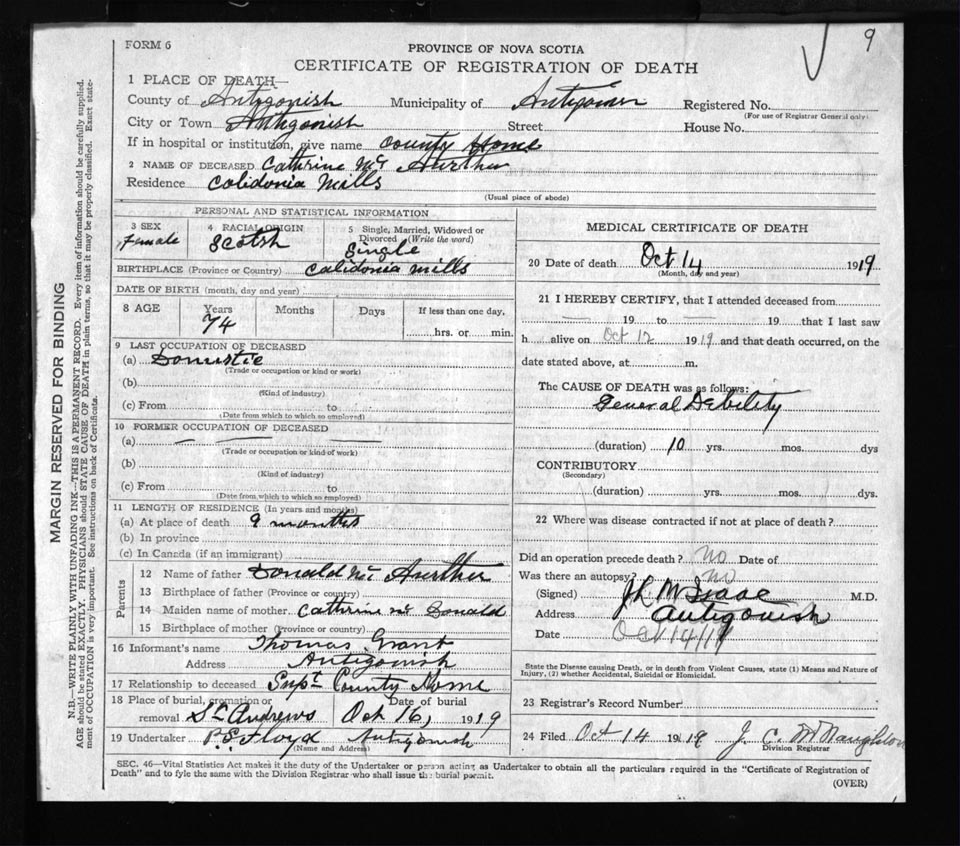 9
FORM 6
PROVINCE OF NOVA SCOTIA
CERTIFICATE OF REGISTRATION OF DEATH
1 PLACE OF DEATH—
County of Antigonish Municipality of Registered No.
(For use of Registrar General only)
City or Town Antigonish Street House No.
If in hospital or institution, give name County Home
2 NAME OF DECEASED Cathrine Mc Aurthur
Residence Calidonia Mills
(Usual place of abode)
PERSONAL AND STATISTICAL INFORMATION
3 SEX Female
4 RACIAL ORIGIN Scotsh
5 Single, Married, Widowed or Divorced (Write the word) Single
BIRTHPLACE (Province or Country) Calidonia Mills
DATE OF BIRTH (month, day and year)
8 AGE Years 74 Months Days If less than one day, hrs. or min.
9 LAST OCCUPATION OF DECEASED
(a) Domestic
(Trade or occupation or kind or work)
(b)
(Kind of industry)
(c) From to
(Date from which to which so employed)
10 FORMER OCCUPATION OF DECEASED
(a) — — —
(Trade or occupation or kind of work)
(b)
(Kind of industry)
(c) From to
(Date from which to which so employed)
11 LENGTH OF RESIDENCE (In years and months)
(a) At place of death 9 months
(b) In province
(c) In Canada (if an immigrant)
Parents
12 Name of father Donald Mc Aurthur
13 Birthplace of father (Province or country)
14 Maiden name of mother Cathrine Mc Donald
15 Birthplace of mother (Province or country)
16 Informant's name Thomas Grant
Address Antigonish
17 Relationship to deceased Supt County Home
18 Place of burial, cremation or removal St Andrews Date of burial Oct 16, 1919
19 Undertaker P.S. Floyd Antigonish
(Name and Address)
MEDICAL CERTIFICATE OF DEATH
20 Date of death Oct 14 1919
(Month, day and year)
21 I HEREBY CERTIFY, that I attended deceased from
— 19 to — 19 that I last saw
h alive on Oct 12 1919 and that death occurred, on the
date stated above, at m.
The CAUSE OF DEATH was as follows:
General Debility
(duration) 10 yrs. mos. dys
CONTRIBUTORY
(Secondary)
(duration) yrs. mos. dys.
22 Where was disease contracted if not at place of death?
Did an operation precede death? no Date of
Was there an autopsy? no
(Signed) McIsaac M.D.
Address Antigonish
Date Oct 14/19
State the Disease causing Death, or in death from Violent Causes, state (1) Means and Nature of
Injury, (2) whether Accidental, Suicidal or Homicidal.
23 Registrar's Record Number
24 Filed Oct 14 1919 J. C. McNaughton
Division Registrar
SEC. 46—Vital Statistics Act makes it the duty of the Undertaker or person acting as Undertaker to obtain all the particulars required in the "Certificate of Registration of
Death" and to fyle the same with the Division Registrar who shall issue the burial permit.
(OVER)
MARGIN RESERVED FOR BINDING
N.B.—WRITE PLAINLY WITH UNFADING INK—THIS IS A PERMANENT RECORD. Every item of information should be carefully supplied.
AGE should be stated EXACTLY. PHYSICIANS should STATE CAUSE OF DEATH in plain terms, so that it may be properly classified. Exact state-
ment of OCCUPATION is very important. See instructions on back of Certificate.